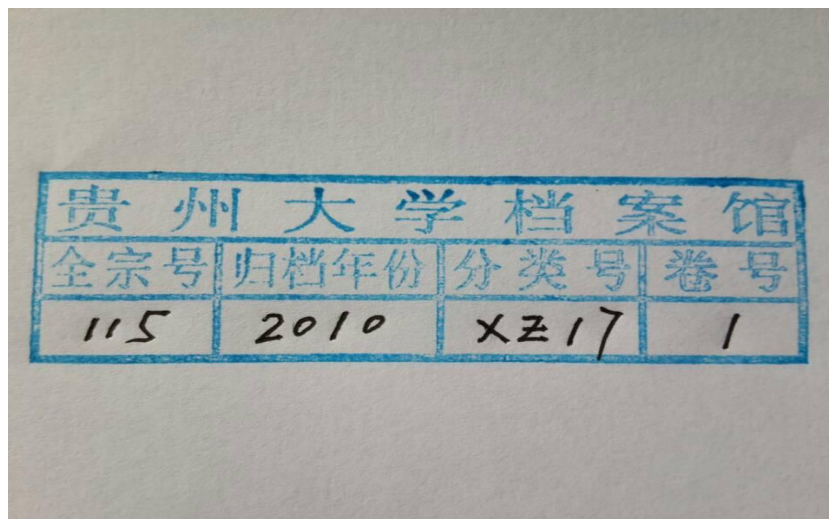 贵州大学档案馆
全宗号 归档年份 分类号 卷号
115 2010 XZ17 1